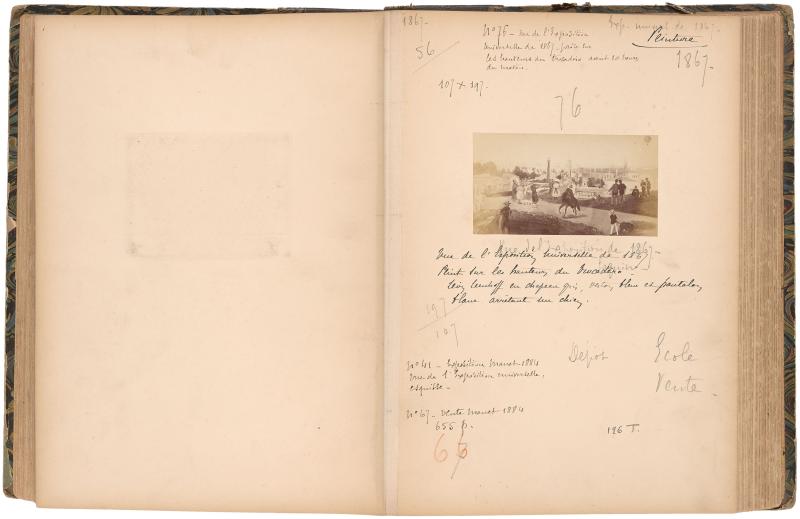 1867-
56
Nº 76 - Vue de l'Exposition
Universelle de 1867. peinte sur
les hauteurs du Trocadéro avant 10 heures
du matin.
de 1867.
Peinture
1867-
107 x 197.
76
Vue de l'Exposition de 1867-
Vue de l'Exposition Universelle de 1867
Peint sur les hauteurs du Trocadéro.
Léon Leenhoff en chapeau gris, veston bleu et pantalon
blanc arrêtant un chien.
197
107
Nº 41 - Exposition Manet 1884
Vue de l'Exposition universelle,
esquisse -
Dépot
Ecole
Vente
Nº 67 - Vente Manet 1884
655 f.
63
196 T.